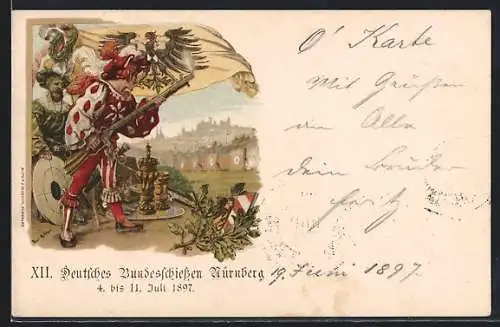 O' Karte
Mit Grüßen
an Alle
dein Bruder
Fritz
XII. Deutsches Bundesschießen Nürnberg
4. bis 11. Juli 1897.
19. Juni 1897.